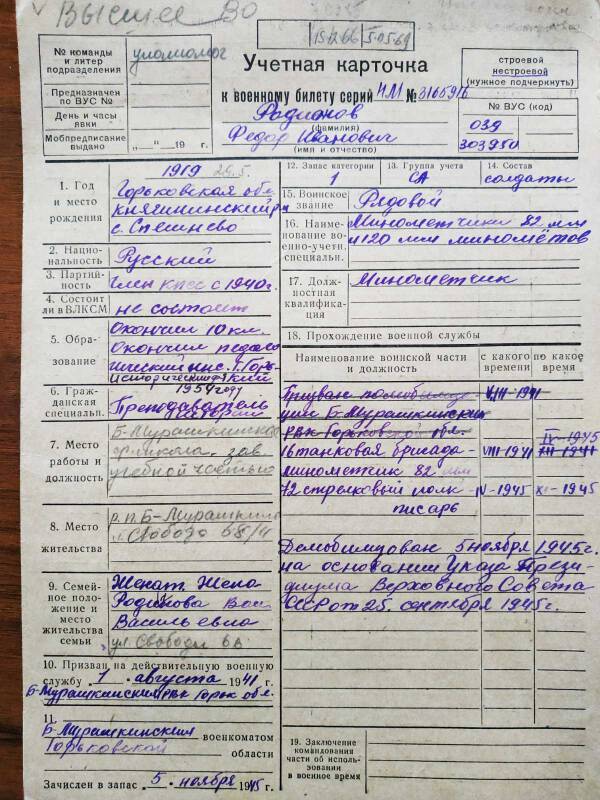 Высшее ВО
15.12.66 5.05.69
№ команды и литер подразделения
Предназначен по ВУС №
День и часы явки
Мобпредписание выдано „ “ 19 г.
Учетная карточка
к военному билету серий НМ № 3165916
Родионов
(фамилия)
Федор Иванович
(имя и отчество)
строевой
нестроевой
(нужное подчеркнуть)
№ ВУС (код)
039
303950
1. Год и место рождения
1919 26.5.
Горьковская обл.
Княгининский р-н
с. Спешнево
2. Национальность Русский
3. Партийность Член КПСС с 1940 г.
4. Состоит ли в ВЛКСМ не состоит
5. Образование
Окончил 10 кл.
Окончил педагогический инс. г. Горький
исторический
1954 году
6. Гражданская специальн. Преподаватель
7. Место работы и должность
Б-Мурашкинская
школа, зав.
учебной частью
8. Место жительства
р.п. Б-Мурашкино
9. Семейное положение и место жительства семьи
Женат Жена
Родионова
Васильевна
ул. Свободы
10. Призван на действительную военную службу 1 августа 1941 г.
Б-Мурашкинским РВК Горьк обл.
11. Б-Мурашкинским военкоматом
Горьковской области
Зачислен в запас 5 ноября 1945 г.
12. Запас категории 1
13. Группа учета СА
14. Состав солдаты
15. Воинское звание Рядовой
16. Наименование военно-учетн. специальн.
Минометчики 82 мм
и 120 мм миномётов
17. Должностная квалификация Минометчик
18. Прохождение военной службы
Наименование воинской части и должность
с какого времени
по какое время
Призван по мобилизации Б-Мурашкинским VIII-1941
РВК Горьковской обл.
16 танковая бригада- VIII-1941 XII-1941 IV-1945
минометчик 82 мм
72 стрелковый полк- IV-1945 XI-1945
писарь
Демобилизован 5 ноября 1945 г.
на основании Указа Прези-
диума Верховного Совета
СССР от 25 сентября 1945 г.
19. Заключение командования части об использовании в военное время